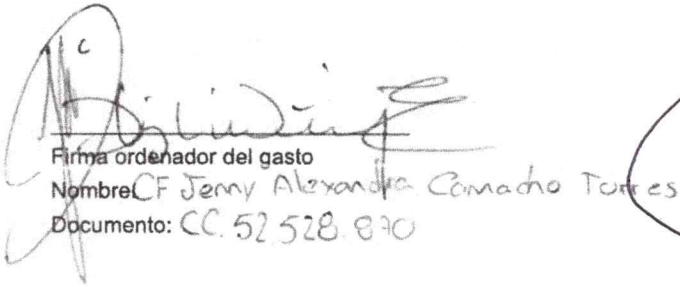 Firma ordenador del gasto
Nombre: CF Jenny Alexandra Camacho Torres
Documento: CC. 52.528.870